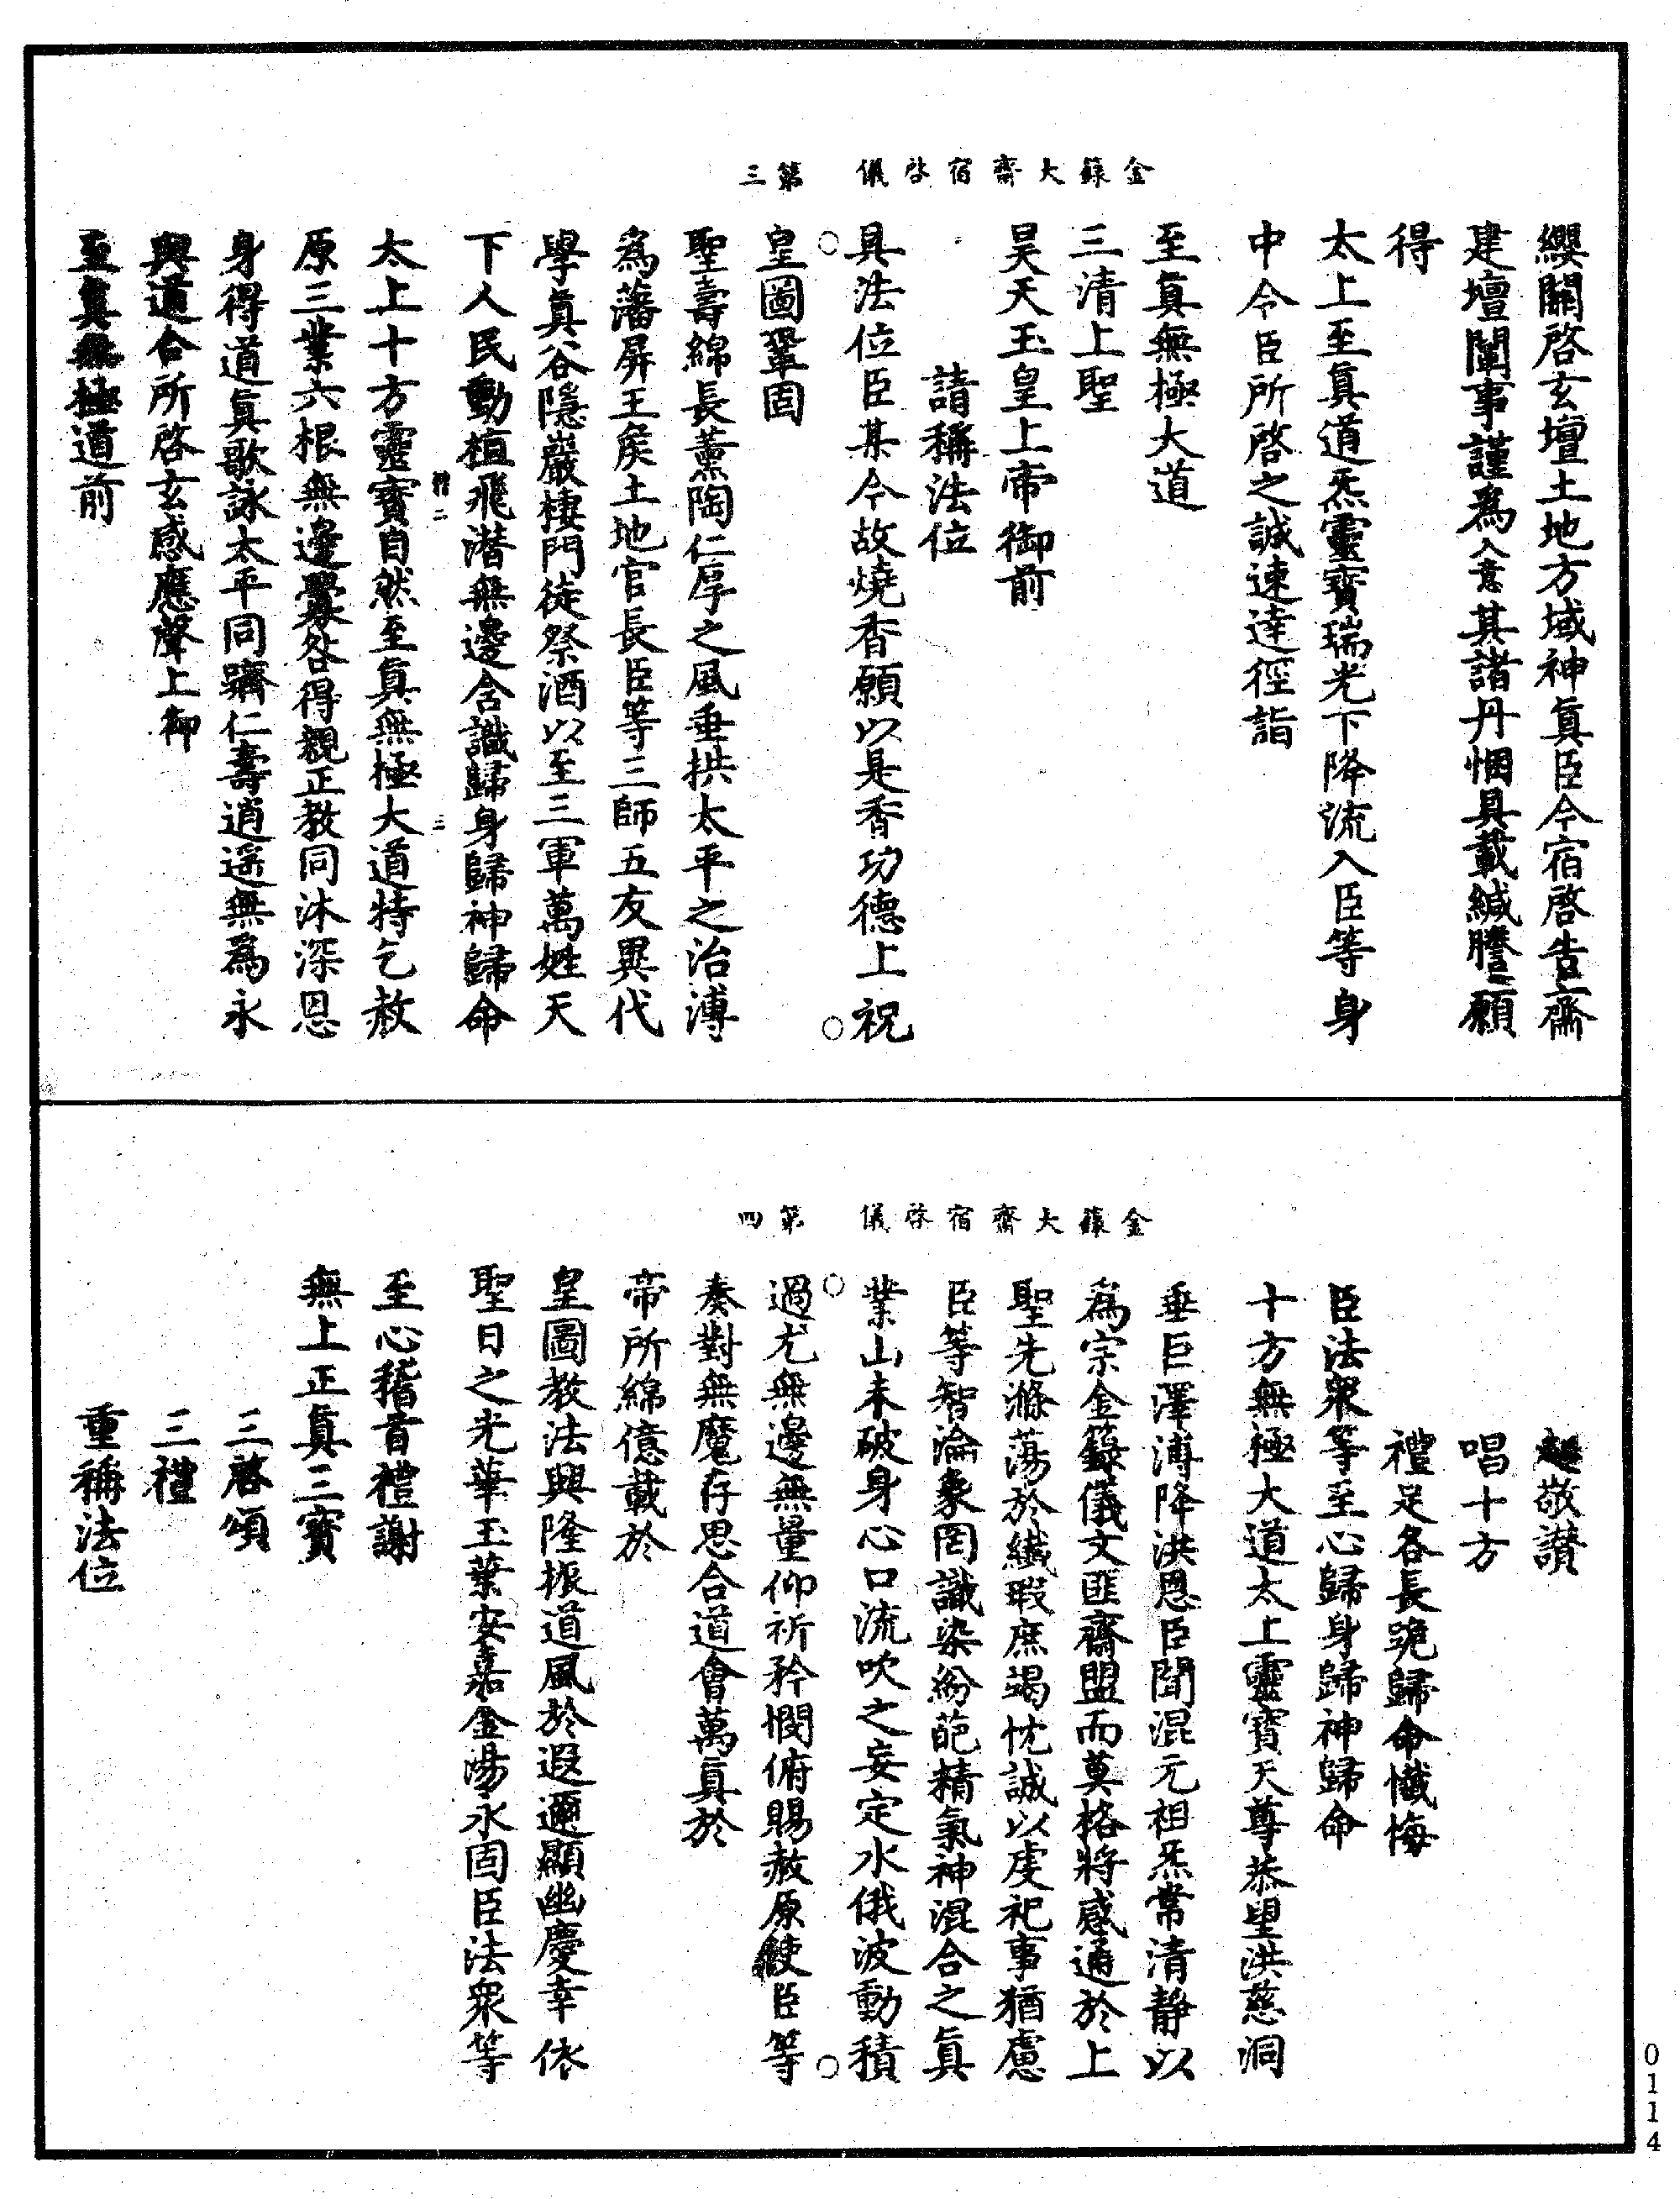 金籙大齋宿啓儀　第三
纓關啓玄壇土地方域神眞臣今宿啓告齋
建壇闡事謹爲入意其諸丹悃具載緘謄願
得
太上至眞道炁靈寳瑞光下降流入臣等身
中令臣所啓之誠速達徑詣
至眞無極大道
三清上聖
昊天玉皇上帝御前
請稱法位
具法位臣某今故燒香願以是香功德上祝
皇圖鞏固
聖壽綿長薰陶仁厚之風垂拱太平之治溥
爲藩屏王矦土地官長臣等三師五友異代
學眞谷隱巖棲門徒祭酒以至三軍萬姓天
下人民動植飛潜無邊含識歸身歸神歸命
二　三
太上十方靈寳自然至眞無極大道特乞赦
原三業六根無邊釁咎得親正教同沐深恩
身得道眞歌詠太平同躋仁壽逍遥無爲永
與道合所啓玄感應聲上御
至眞無極道前
金籙大齋宿啓儀　第四
起敬讃
唱十方
禮足各長跪歸命懺悔
臣法衆等至心歸身歸神歸命
十方無極大道太上靈寳天尊恭望洪慈洞
垂巨澤溥降洪恩臣聞混元祖炁常清靜以
爲宗金籙儀文匪齋盟而莫格將感通於上
聖先滌蕩於纖瑕庶竭忱誠以虔祀事猶慮
臣等智淪象罔識染紛葩精氣神混合之眞
業山未破身心口流吹之妄定水俄波動積
過尤無邊無量仰祈矜憫俯賜赦原使臣等
奏對無魔存思合道會萬眞於
帝所綿億載於
皇圖教法興隆振道風於遐邇顯幽慶幸依
聖日之光華玉葉安嘉金湯永固臣法衆等
至心稽首禮謝
無上正眞三寳
三啓頌
三禮
重稱法位
0114